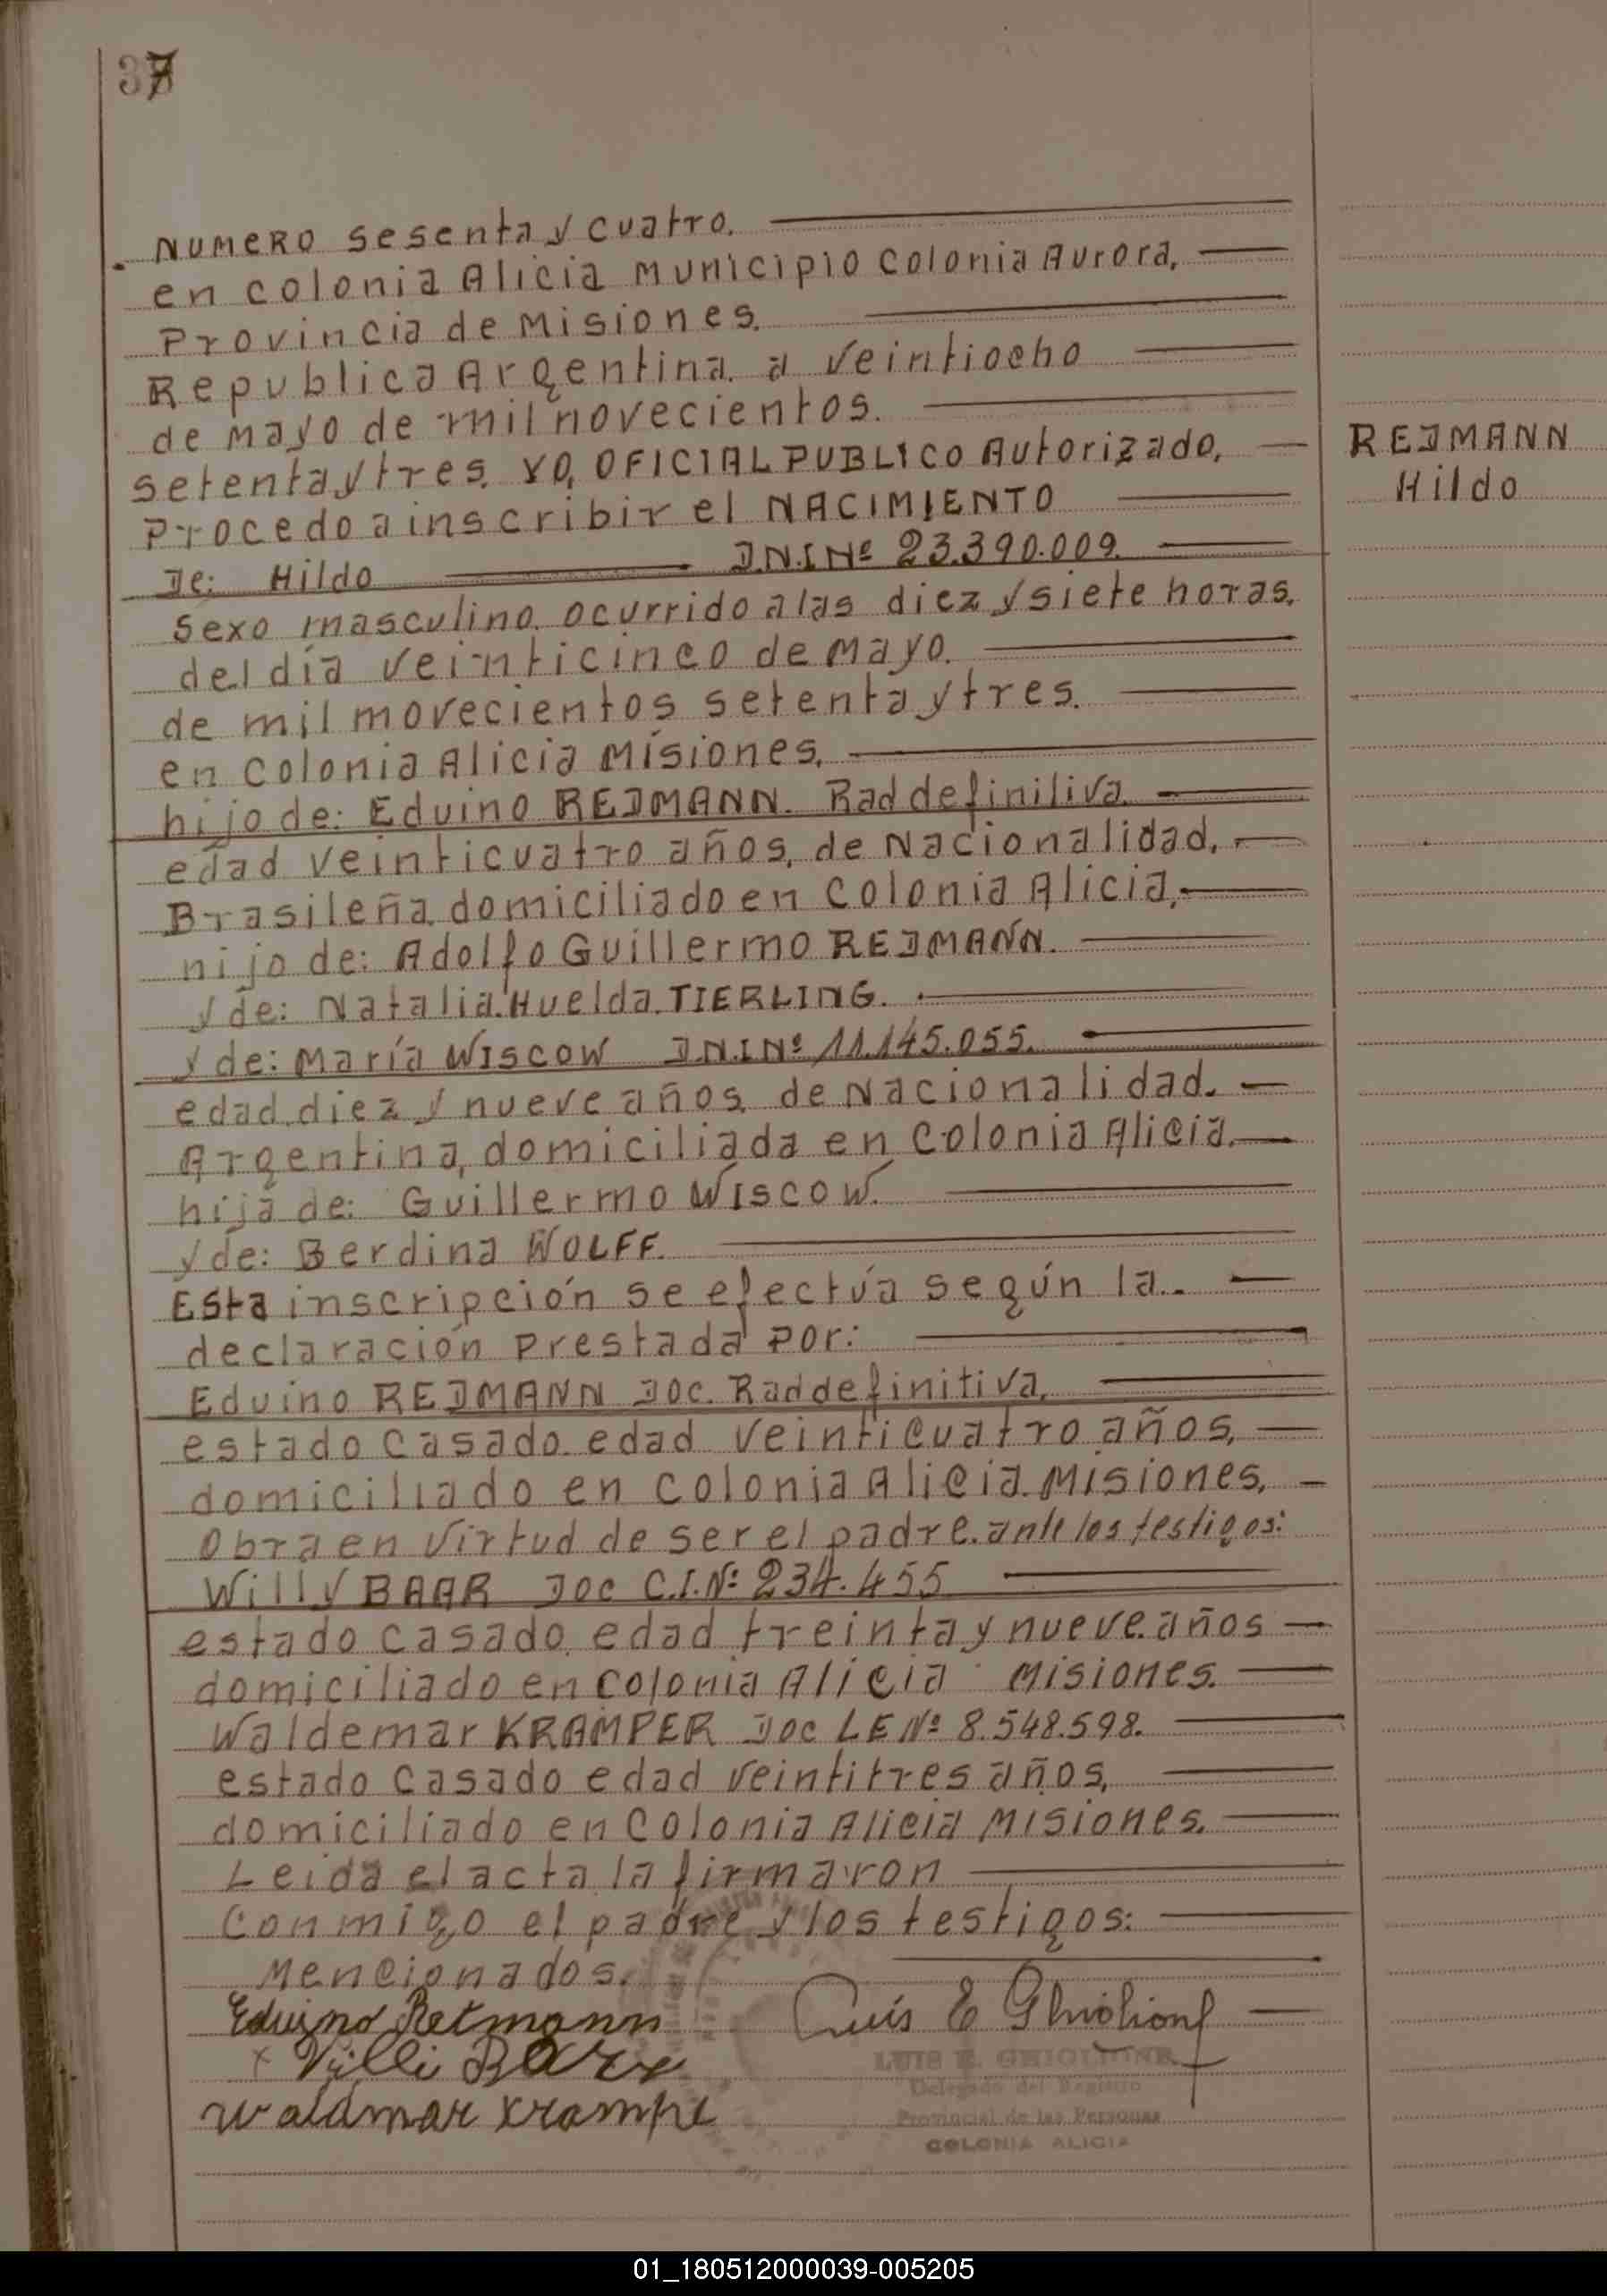 37
NUMERO sesenta y cuatro.
en colonia Alicia municipio colonia Aurora,
Provincia de Misiones.
Republica Argentina. a veintiocho
de mayo de mil novecientos.
setenta y tres. YO, OFICIAL PUBLICO Autorizado,
Procedo a inscribir el NACIMIENTO
De: Hildo D.N.I Nº 23.390.009.
sexo masculino. ocurrido a las diez y siete horas.
del día veinticinco de mayo.
de mil movecientos setenta y tres.
en colonia Alicia Misiones.
hijo de: Eduino REDMANN. Rad definiliva.
edad veinticuatro años, de Nacionalidad,
Brasileña, domiciliado en colonia Alicia,
hijo de: Adolfo Guillermo REDMANN.
y de: Natalia. Huelda. TIERLING.
y de: María WISCOW D.N.I Nº 11.145.055.
edad. diez y nueve años, de Nacionalidad.
Argentina, domiciliada en colonia Alicia.
hija de: Guillermo WISCOW.
y de: Berdina WOLFF.
Esta inscripción se efectúa según la..
declaración prestada por:
Eduino REDMANN DOC. Rad definitiva,
estado casado. edad veinticuatro años,
domiciliado en colonia Alicia. Misiones,
obra en virtud de ser el padre. ante los testigos:
Willy BAAR DOC C.I. Nº 234.455
estado casado. edad treinta y nueve. años
domiciliado en colonia Alicia Misiones.
Waldemar KRAMPER DOC LE Nº 8.548.598.
estado casado edad veintitres años,
domiciliado en colonia Alicia Misiones.
Leida el acta la firmaron
conmigo el padre y los testigos:
Mencionados.
REDMANN
Hildo
Eduino Retmann
Luis E Ghiolione
x Villi Barr
LUIS E. GHIOLIONE
Delegado del Registro
waldmar Krampe
Provincial de las Personas
COLONIA ALICIA
01_180512000039-005205